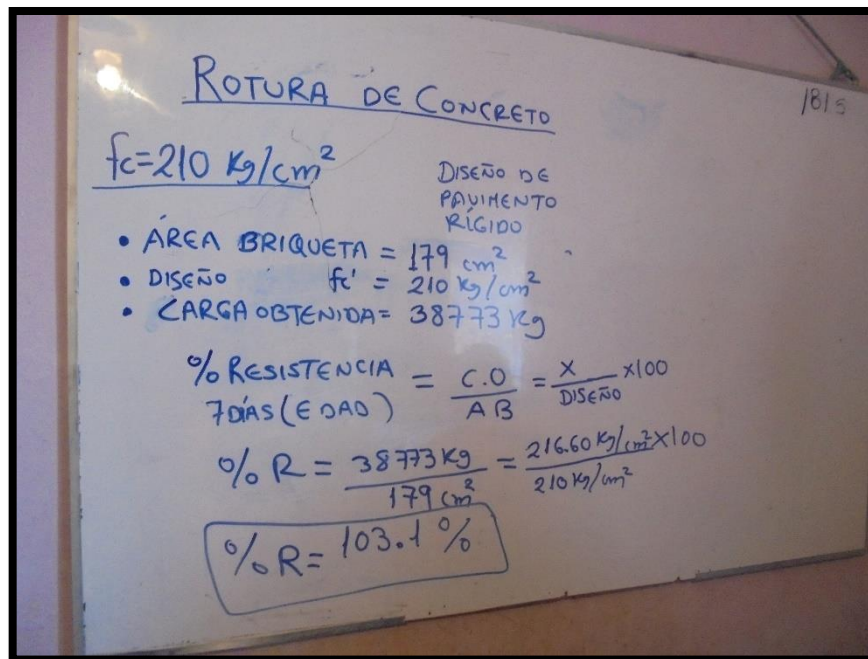 ROTURA DE CONCRETO
1815
fc=210 Kg/cm²
DISEÑO DE
PAVIMENTO
RÍGIDO
• ÁREA BRIQUETA = 179 cm²
• DISEÑO fc' = 210 Kg/cm²
• CARGA OBTENIDA = 38773 Kg
% RESISTENCIA = C.O / AB = X / DISEÑO x100
7 DÍAS (EDAD)
% R = 38773 Kg / 179 cm² = 216.60 Kg/cm² x100 / 210 Kg/cm²
% R = 103.1 %